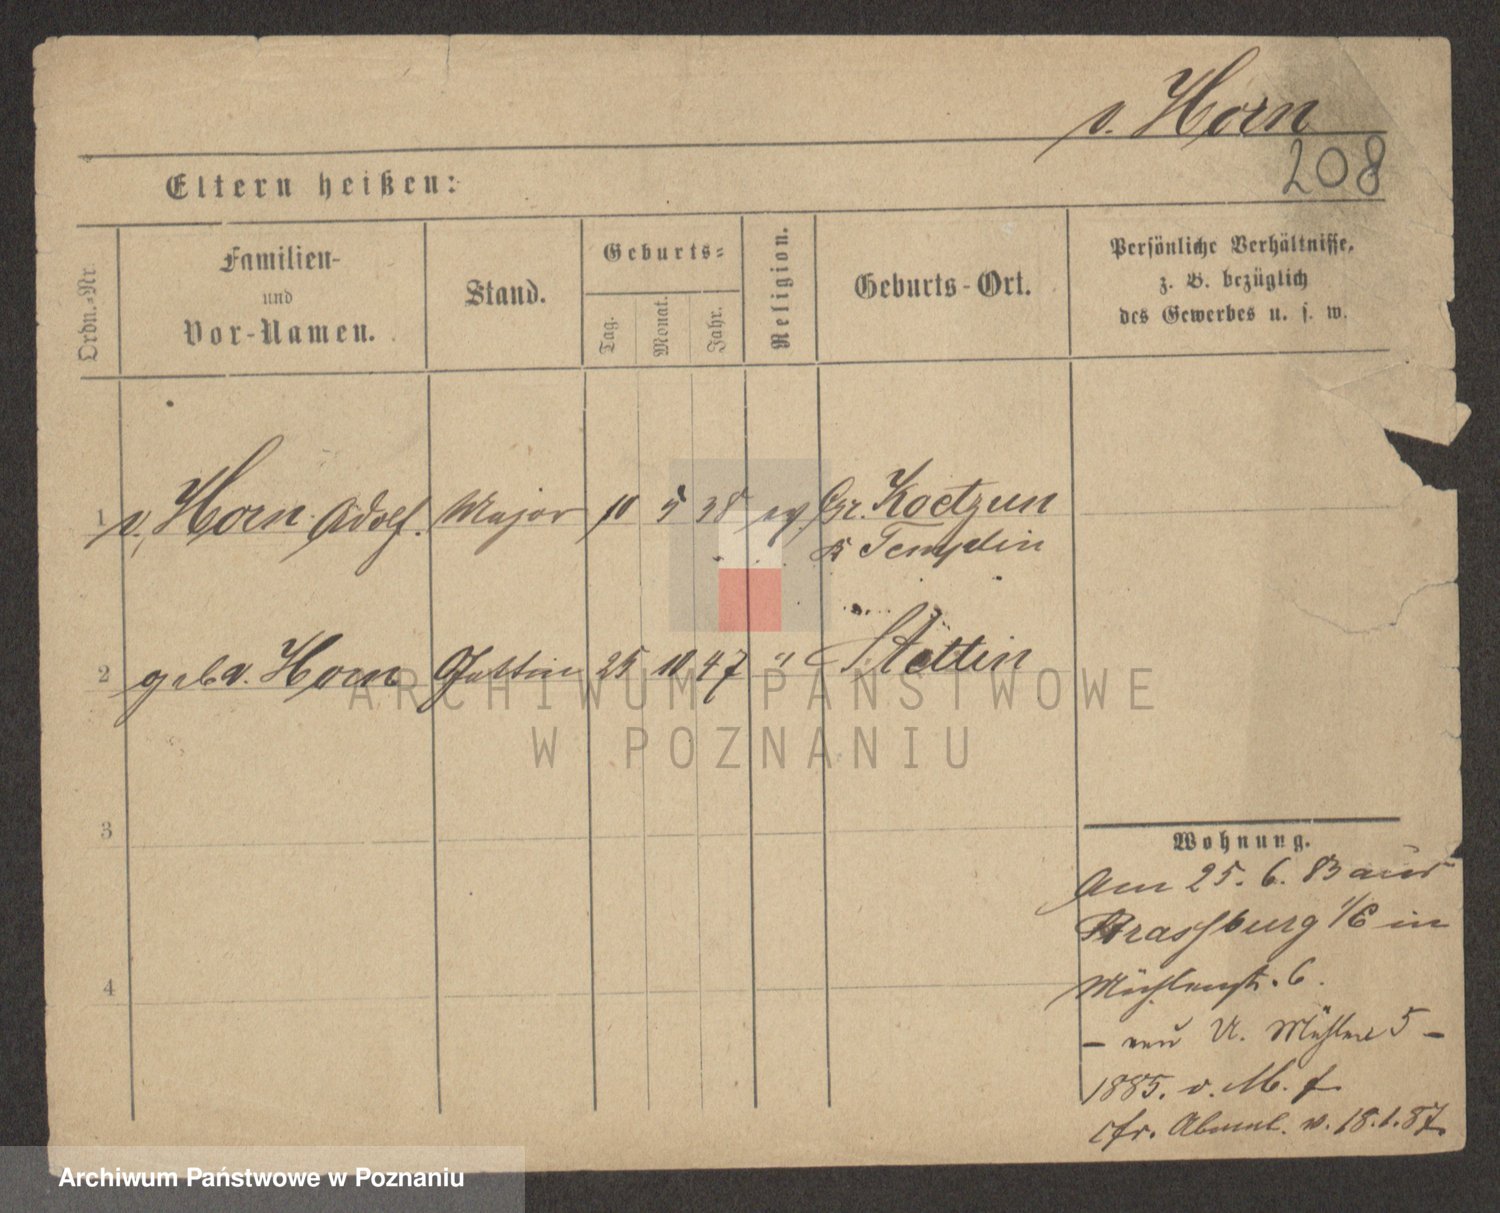 v. Horn
208
Eltern heißen:
Ordn.-Nr.
Familien-
und
Vor-Namen.
Stand.
Geburts-
Tag.
Monat.
Jahr.
Religion.
Geburts-Ort.
Persönliche Verhältnisse,
z. B. bezüglich
des Gewerbes u. s. w.
1 v. Horn Adolf. Major 10 5 38 ev. Gr. Koetzun
Templin
2 geb. v. Horn Gattin 25 10 47 " Stettin
3
4
Wohnung.
Am 25. 6. 83 aus
Strassburg i/E in
Mühlenstr. 6.
– U. Mühlen 5 –
1885. v. M. f
cfr. Abmel. v. 18.1.87.
ARCHIWUM PAŃSTWOWE
W POZNANIU
Archiwum Państwowe w Poznaniu